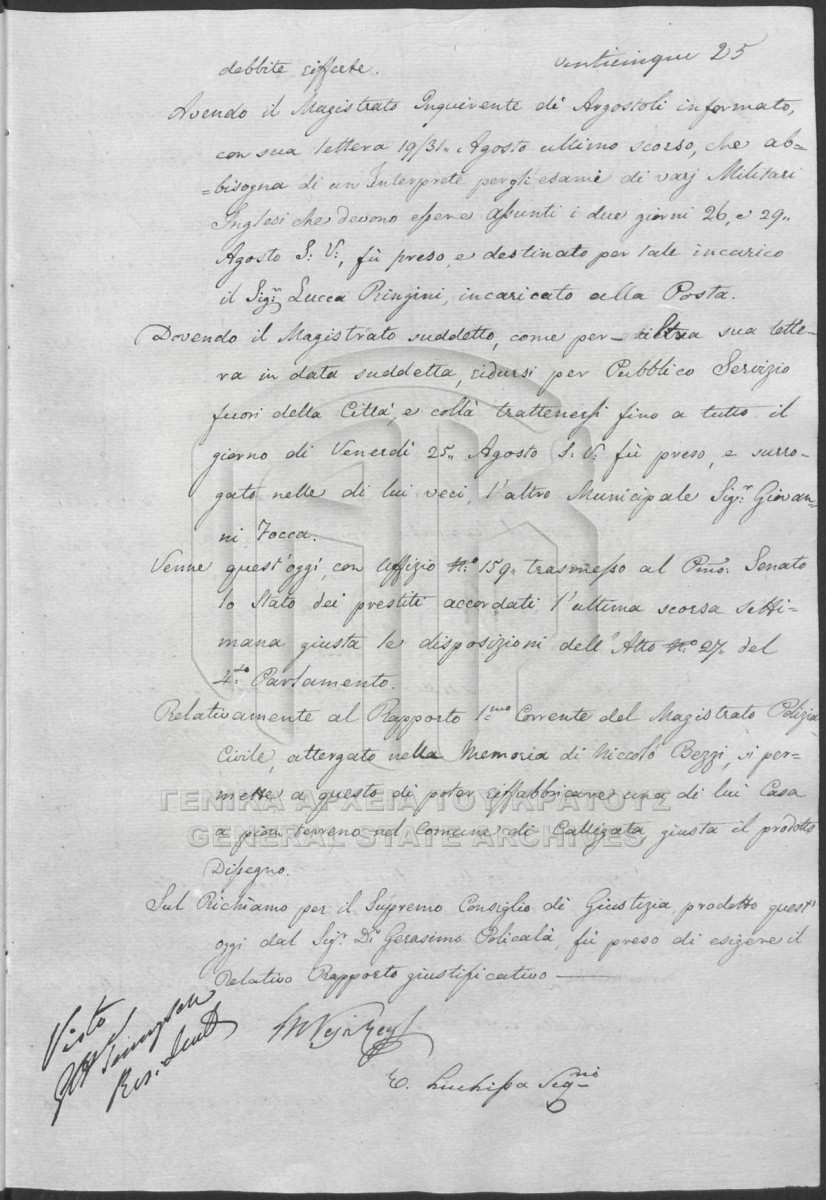 venticinque 25
debbite
Avendo il Magistrato Inquirente di Argostoli informato,
con sua lettera 19/31„ Agosto ultimo scorso, che ab=
=bisogna di un Interprete per gli esami di varj Militari
Inglesi che devono essere assunti i due giorni 26, e 29„
Agosto S: V:, fù preso, e destinato per tale incarico
il Sigr: Lucca Ringini, incaricato alla Posta.
Dovendo il Magistrato suddetto, come per altra sua lette-
ra in data suddetta, ridursi per Pubblico Servizio
fuori della Città, e collà trattenersi fino a tutto il
giorno di Venerdì 25„ Agosto S: V: fù preso, e surro-
gato nelle di lui veci, l'altro Municipale Sigr: Giovan=
ni Tocca.
Venne quest'oggi, con Uffizio No: 159„ trasmesso al Pmo: Senato
lo Stato dei prestiti accordati l'ultima scorsa setti-
mana giusta le disposizioni dell'Atto No 27„ del
4:to Parlamento.
Relativamente al Rapporto 1:mo Corrente del Magistrato Polizia
Civile, attergato nella Memoria di Niccolò Bezzi, si per=
mette a questo di poter riffabbricare una di lui Casa
a pian terreno nel Comune di Calligata, giusta il prodotto
Disegno.
Sul Richiamo per il Supremo Consiglio di Giustizia prodotto quest'
oggi dal Sigr: Dr: Gerasimo Policalà, fù preso di esigere il
Relativo Rapporto giustificativo —
Visto
Resident
E. Luchissa Segrio
ΓΕΝΙΚΑ ΑΡΧΕΙΑ ΤΟΥ ΚΡΑΤΟΥΣ
GENERAL STATE ARCHIVES